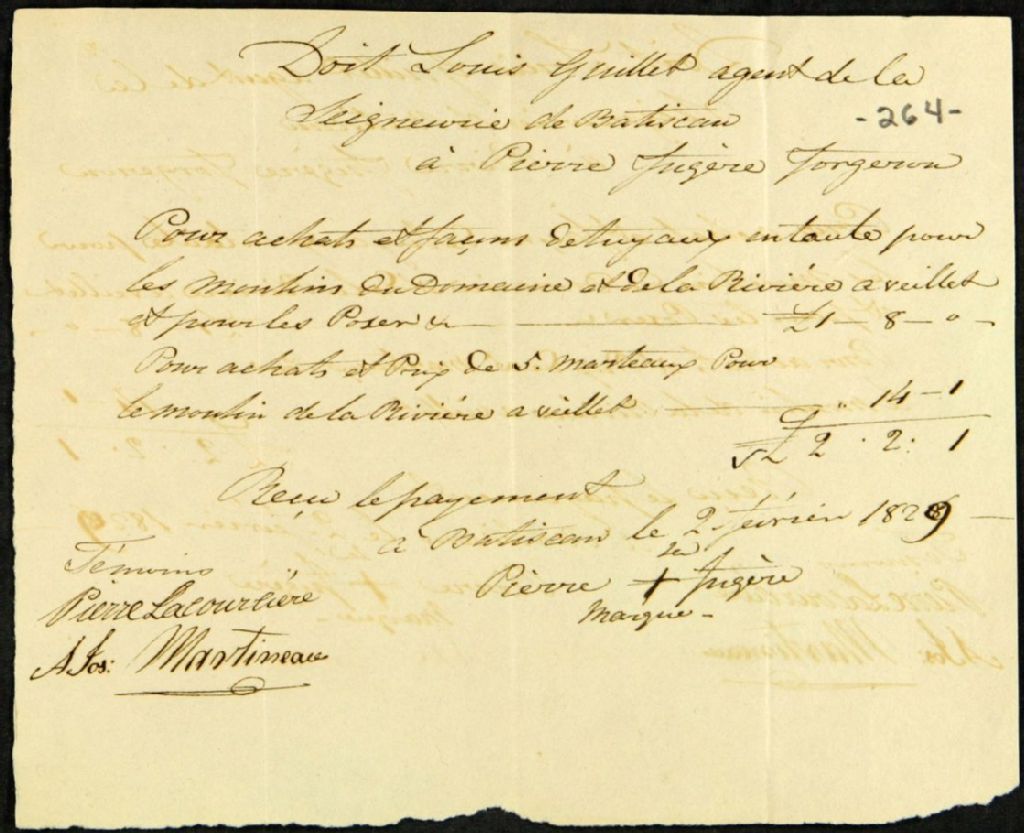 Doit Louis Guillet agent de la
Seigneurie de Batiscan
-264-
à Pierre Fugère forgeron
Pour achats et façons de tuyaux en taule pour
les moulins du Domaine et de la Rivière a veillet
et pour les Poser &c £1 - 8 - 0 -
Pour achats et Prix de 5. marteaux Pour
le moulin de la Rivière a veillet " 14 - 1
£ 2 . 2 : 1
Recu le payement
à Batiscan le 2 février 1829
Témoins
sa
Pierre + Fugère
Pierre Lacourcière
marque -
A Jos: Martineau